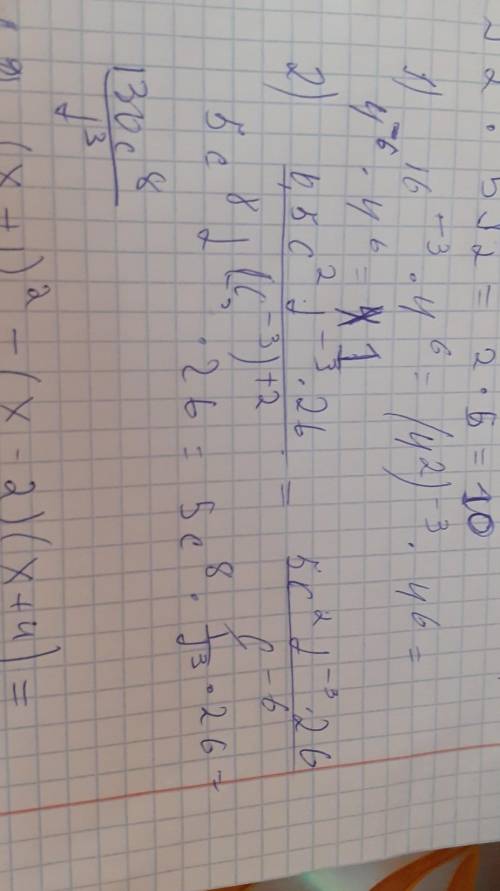 2 · 5√2 = 2 · 5 = 10
1) 16⁻³ · 4⁶ = (4²)⁻³ · 4⁶ =
4⁻⁶ · 4⁶ = 1
2) 65c²d⁻³ · 26 / (c⁻³)+2 = 5c²d⁻³ · 26 / c⁻⁶
5c⁸d⁻³ · 26 = 5c⁸ · 1/d³ · 26 =
130c⁸ / d³
(x + 1)² - (x - 2)(x + 4) =